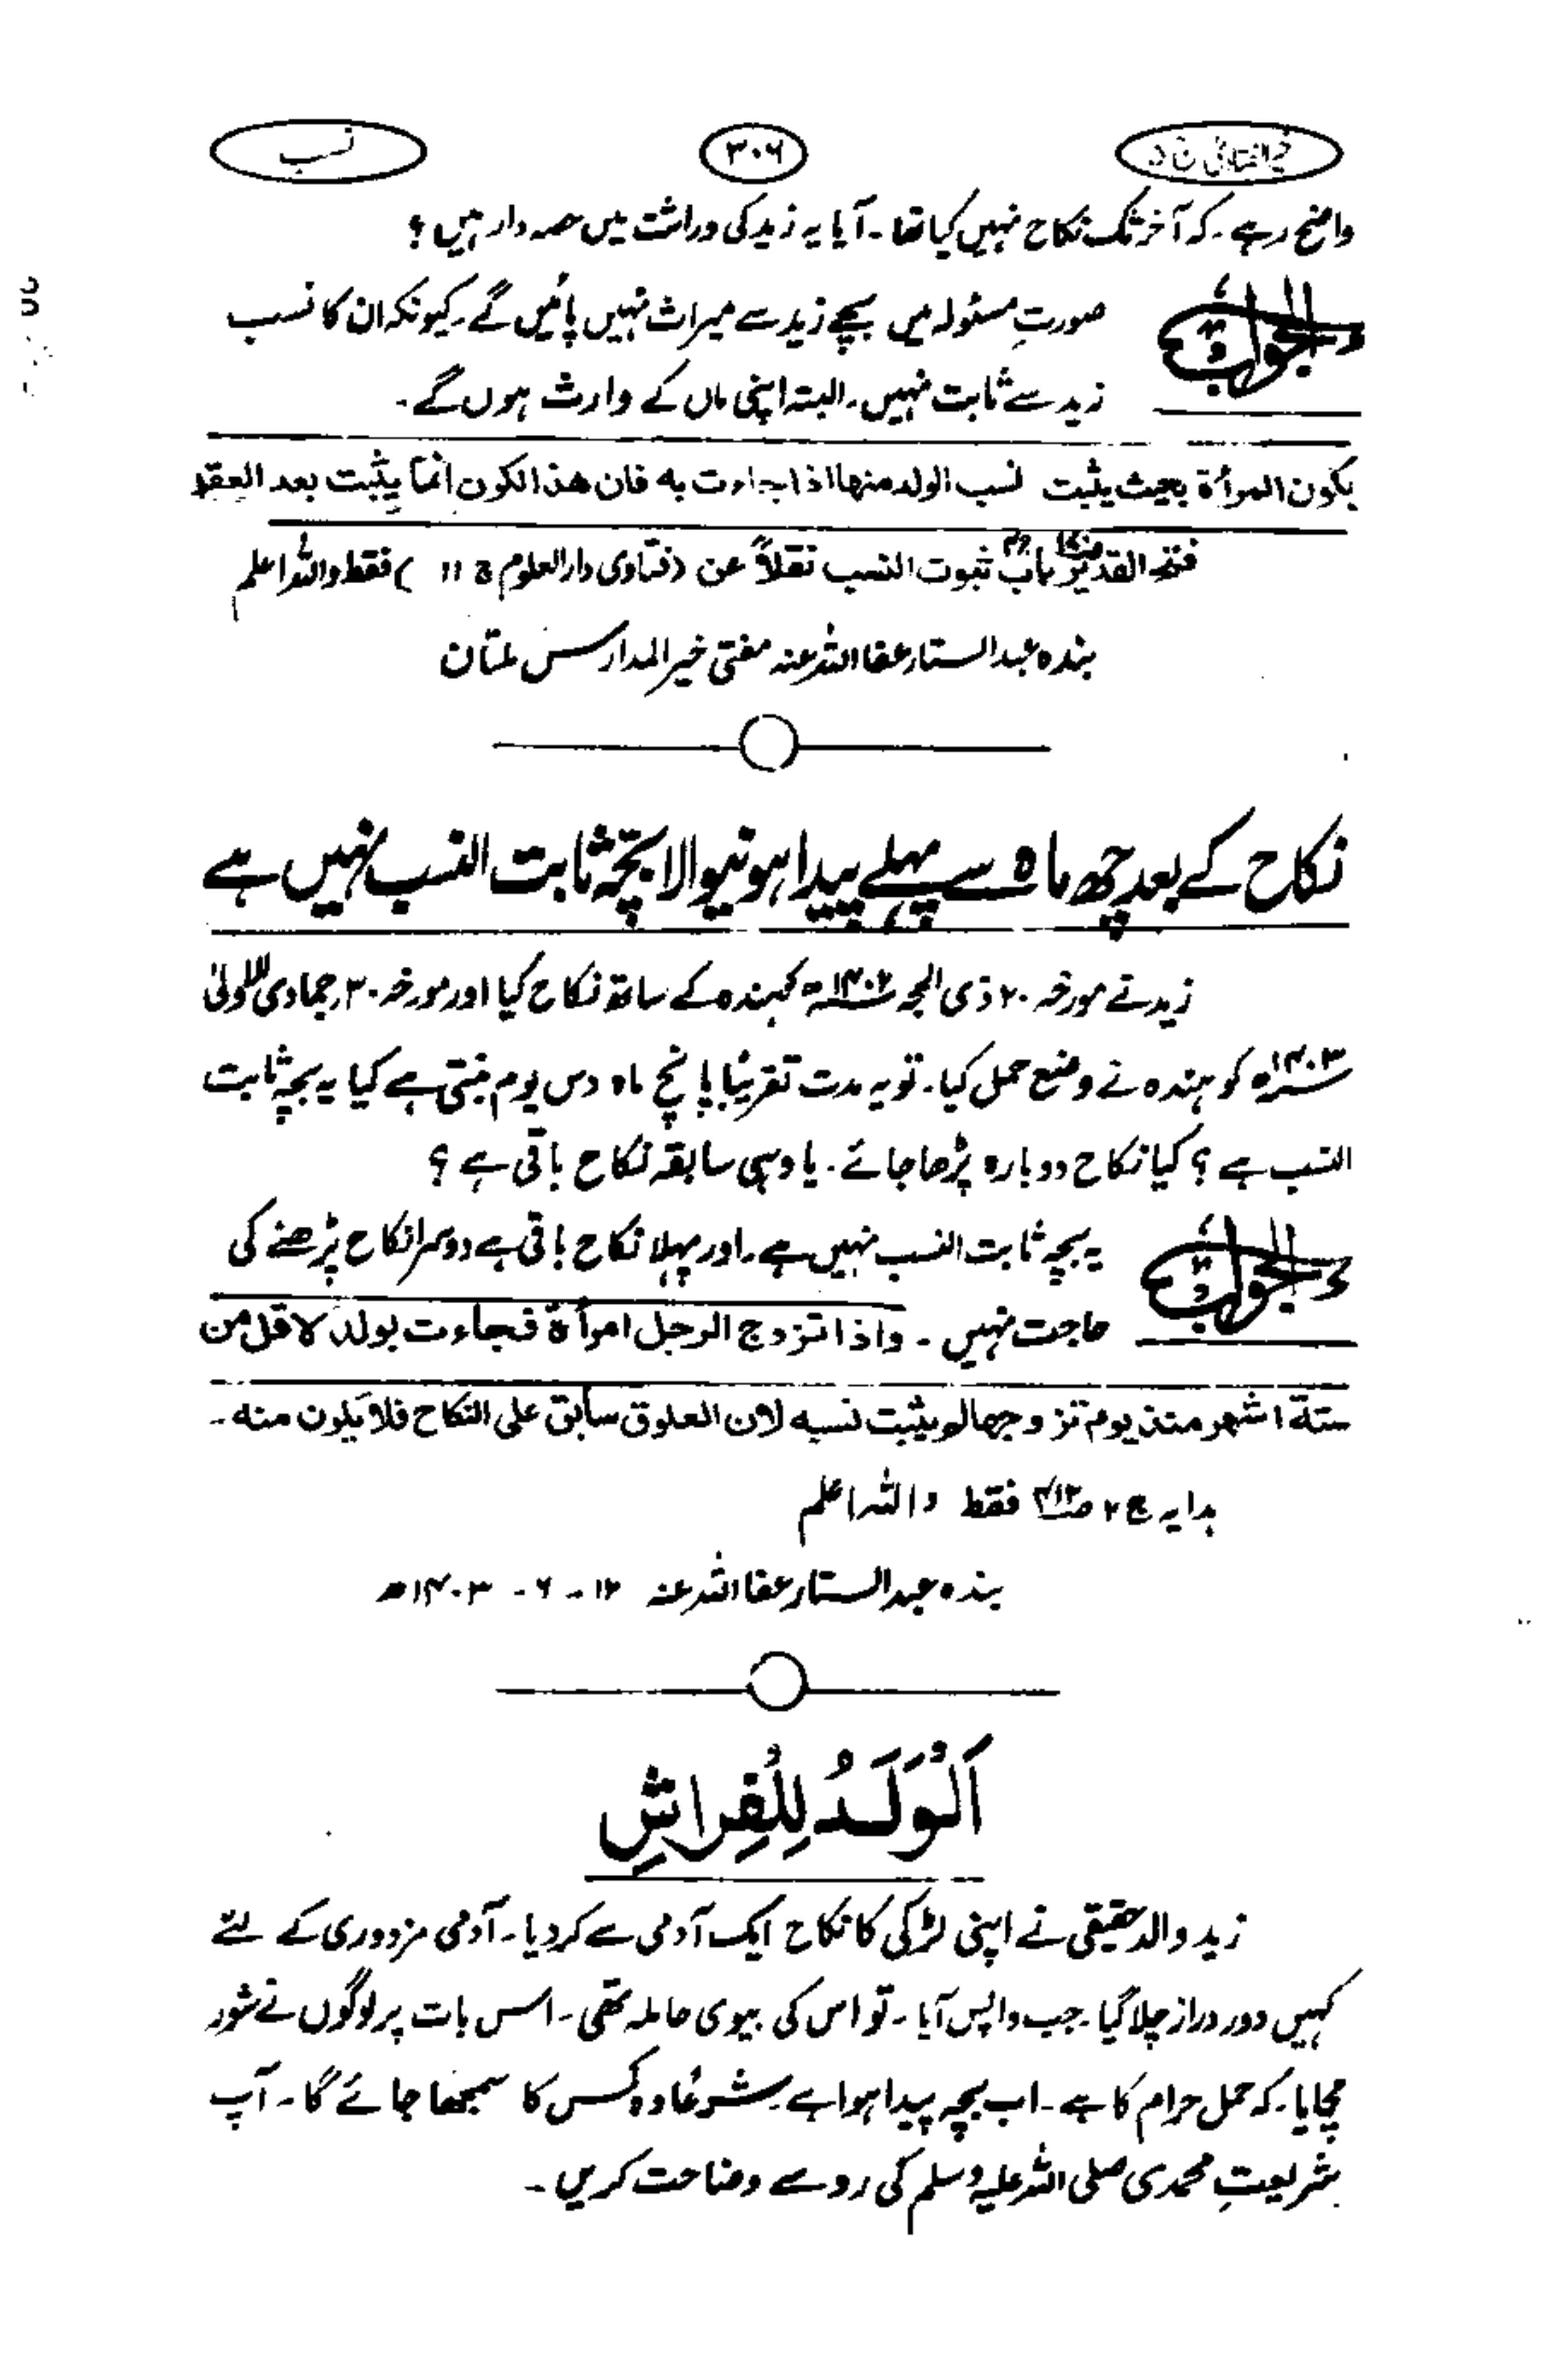 نسب
۳۰۶
واضح رہے۔ کہ آخر تک نکاح نہیں کیا تھا۔ آیا یہ زید کی وراثت میں حصہ دار ہیں ؟
الجواب
صورتِ مسئولہ میں بچے زید سے میراث نہیں پائیں گے۔ کیونکہ ان کا نسب
زید سے ثابت نہیں۔ البتہ اپنی ماں کے وارث ہوں گے۔
بكون المرأة بحيث يثبت نسب الولد منها اذا جاءت به فان هذا الكون انما يثبت بعد العقد
فتح القدير باب ثبوت النسب نقلاً عن (فتاوی دارالعلوم ج ۱۱ ) فقط واللہ اعلم
بندہ عبدالستار عفا اللہ عنہ مفتی خیر المدارس ملتان
نکاح کے بعد چھ ماہ سے پہلے پیدا ہونیوالا بچّہ ثابت النسب نہیں ہے
زید نے مورخہ ۲۰ ذی الحجہ ۱۴۰۲ھ کو ہندہ کے ساتھ نکاح کیا اور مورخہ ۳۰ جمادی الاولیٰ
۱۴۰۳ھ کو ہندہ نے وضع حمل کیا۔ تو یہ مدت تقریبًا پانچ ماہ دس یوم بنتی ہے کیا یہ بچہ ثابت
النسب ہے ؟ کیا نکاح دوبارہ پڑھا جائے۔ یا وہی سابقہ نکاح باقی ہے ؟
الجواب
یہ بچہ ثابت النسب نہیں ہے۔ اور پہلا نکاح باقی ہے دوسرا نکاح پڑھنے کی
حاجت نہیں ۔ واذا تزوج الرجل امرأة فجاءت بولد لاقل من
ستة اشهر منذ يوم تزوجها لم يثبت نسبه لان العلوق سابق على النكاح فلا يكون منه ۔
ہدایہ ج ۲ فقط واللہ اعلم
بندہ عبدالستار عفا اللہ عنہ ۱۲ - ۶ - ۱۴۰۳ھ
اَلْوَلَدُ لِلْفِرَاشِ
زید والد حقیقی نے اپنی لڑکی کا نکاح ایک آدمی سے کر دیا۔ آدمی مزدوری کے لئے
کہیں دور دراز چلا گیا۔ جب واپس آیا۔ تو اس کی بیوی حاملہ تھی۔ اس بات پر لوگوں نے شور
مچایا۔ کہ حمل حرام کا ہے۔ اب بچہ پیدا ہوا ہے۔ شرعًا وہ کس کا سمجھا جائے گا۔ آپ
شریعتِ محمدی صلی اللہ علیہ وسلم کی رو سے وضاحت کریں ۔